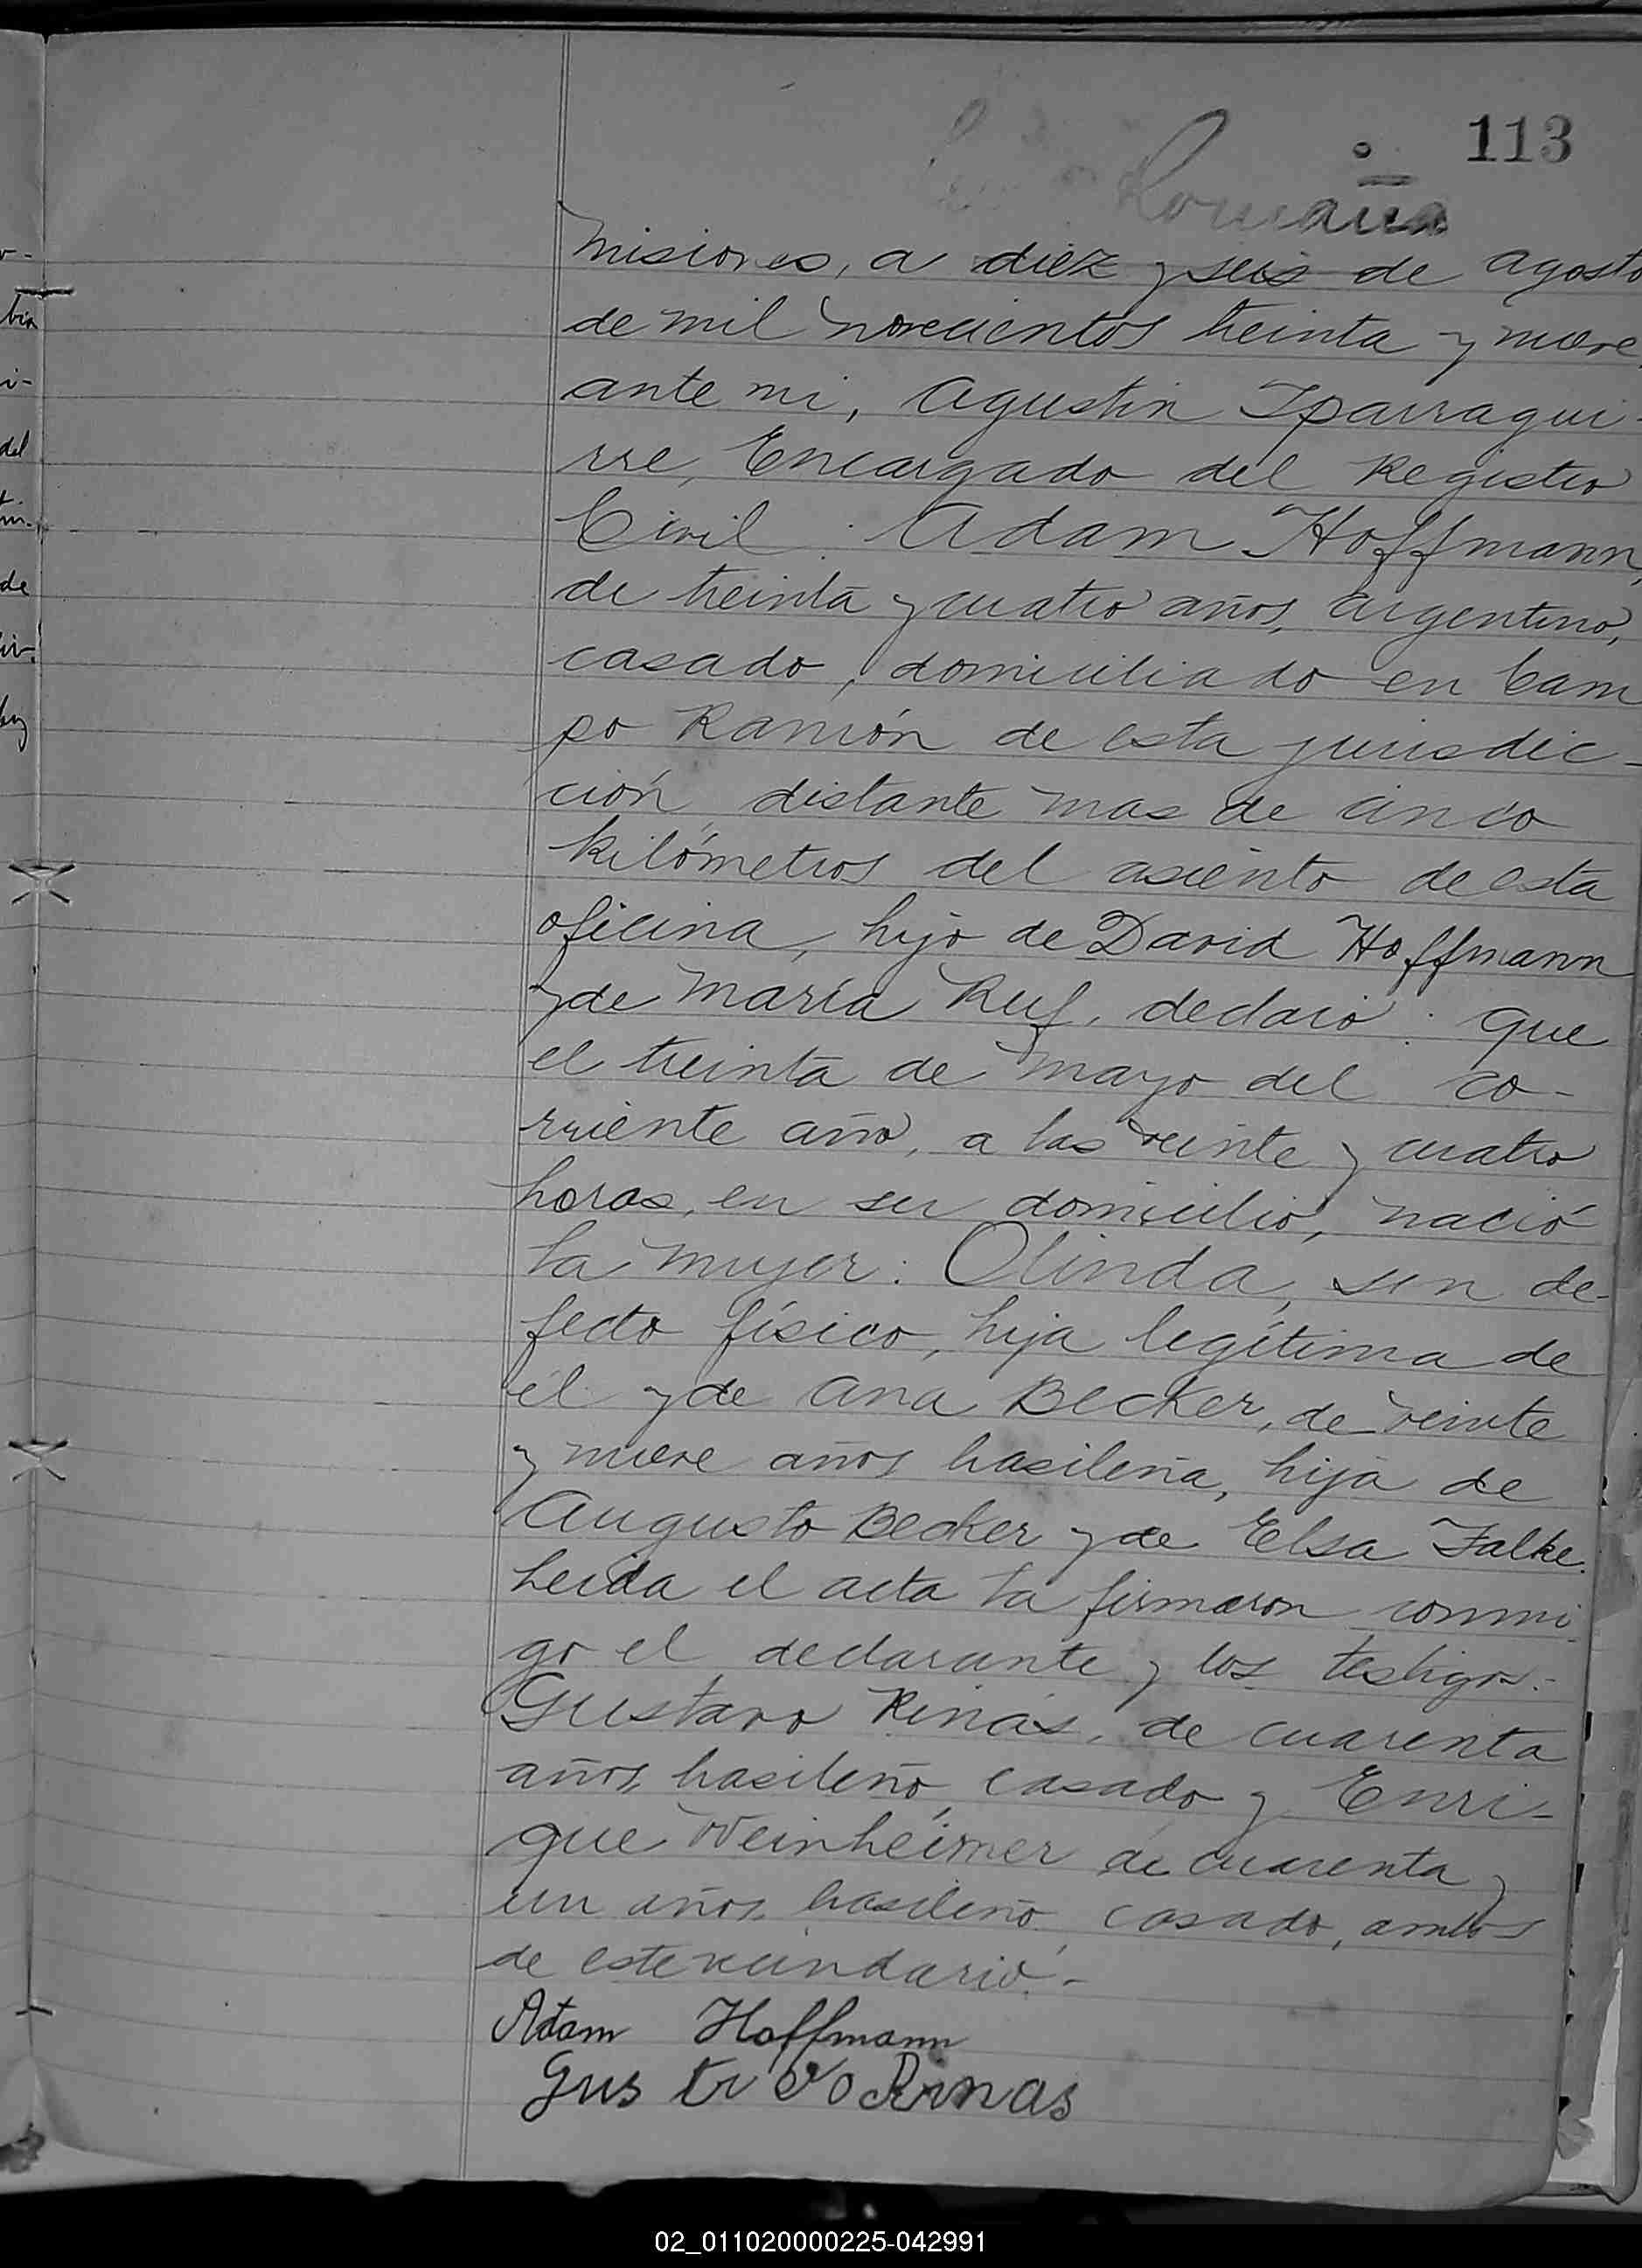 113
Romana
Misiones, a diez y seis de agosto
de mil novecientos treinta y nueve
ante mi, Agustin Iparragui-
rre, Encargado del Registro
Civil: Adam Hoffmann,
de treinta y cuatro años, argentino,
casado, domiciliado en Cam
po Ramón de esta jurisdic-
ción, distante mas de cinco
kilómetros del asiento de esta
oficina, hijo de David Hoffmann
y de María Ruf, declaró: Que
el treinta de mayo del co-
rriente año, a las veinte y cuatro
horas, en su domicilio, nació
la mujer: Olinda, sin de-
fecto físico, hija legítima de
él y de Ana Becker, de veinte
y nueve años brasileña, hija de
Augusto Becker y de Elsa Falke.
Leida el acta la firmaron conmi
go el declarante y los testigos:-
Gustavo Rinas, de cuarenta
años, brasileño, casado y Enri-
que Weinheimer de cuarenta y
un años, brasileño, casado, ambos
de este vecindario.-
Adam Hoffmann
Gustavo Rinas
bia
i-
del
de
02_011020000225-042991